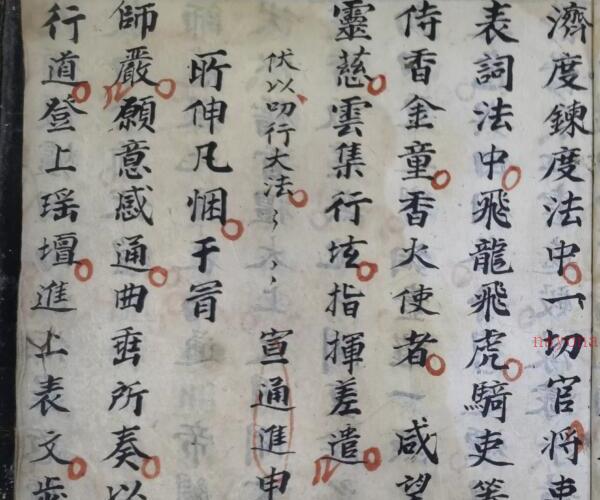 濟度鍊度法中一切官将吏
表詞法中飛龍飛虎騎吏等
侍香金童香火使者 咸望
靈慈雲集行垓指揮差遣
伏以叨行大法 宣通進申
所伸凡悃干冒
師嚴願意感通曲垂所奏以
行道登上瑶壇進上表文步